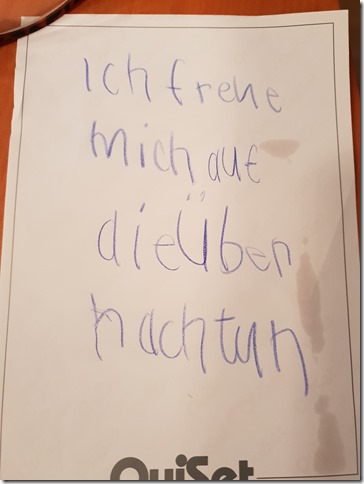 Ich frehe
mich auf
die Üben
nachtun
QuiSet